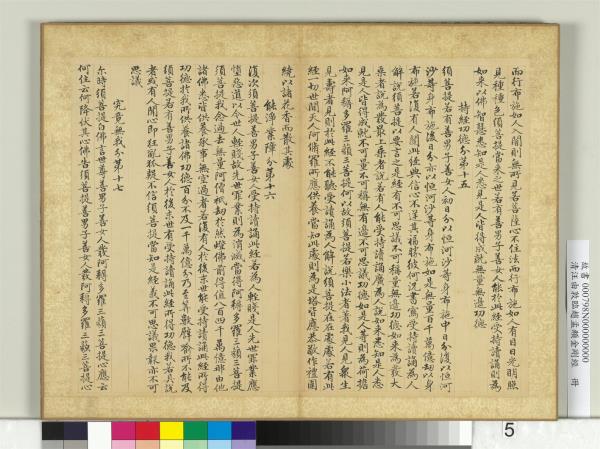 而行布施如人入闇則無所見若菩薩心不住法而行布施如人有目日光明照
見種種色須菩提當來之世若有善男子善女人能於此經受持讀誦則為
如來以佛智慧悉知是人悉見是人皆得成就無量無邊功德
持經功德分第十五
須菩提若有善男子善女人初日分以恒河沙等身布施中日分復以恒河
沙等身布施後日分亦以恒河沙等身布施如是無量百千萬億劫以身
布施若復有人聞此經典信心不逆其福勝彼何況書寫受持讀誦為人
解說須菩提以要言之是經有不可思議不可稱量無邊功德如來為發大
乘者說為發最上乘者說若有人能受持讀誦廣為人說如來悉知是人悉
見是人皆得成就不可量不可稱無有邊不可思議功德如是人等則為荷擔
如來阿耨多羅三藐三菩提何以故須菩提若樂小法者著我見人見眾生
見壽者見則於此經不能聽受讀誦為人解說須菩提在在處處若有此
經一切世間天人阿脩羅所應供養當知此處則為是塔皆應恭敬作禮圍
繞以諸花香而散其處
能淨業障分第十六
復次須菩提善男子善女人受持讀誦此經若為人輕賤是人先世罪業應
墮惡道以今世人輕賤故先世罪業則為消滅當得阿耨多羅三藐三菩提
須菩提我念過去無量阿僧祇劫於然燈佛前得值八百四千萬億那由他
諸佛悉皆供養承事無空過者若復有人於後末世能受持讀誦此經所得
功德於我所供養諸佛功德百分不及一千萬億分乃至算數譬喻所不能及
須菩提若有善男子善女人於後末世有受持讀誦此經所得功德我若具說
者或有人聞心即狂亂狐疑不信須菩提當知是經義不可思議果報亦不可
思議
究竟無我分第十七
尒時須菩提白佛言世尊善男子善女人發阿耨多羅三藐三菩提心應云
何住云何降伏其心佛告須菩提善男子善女人發阿耨多羅三藐三菩提心
故書 000798N000000000
清汪由敦臨趙孟頫金剛經 冊
5